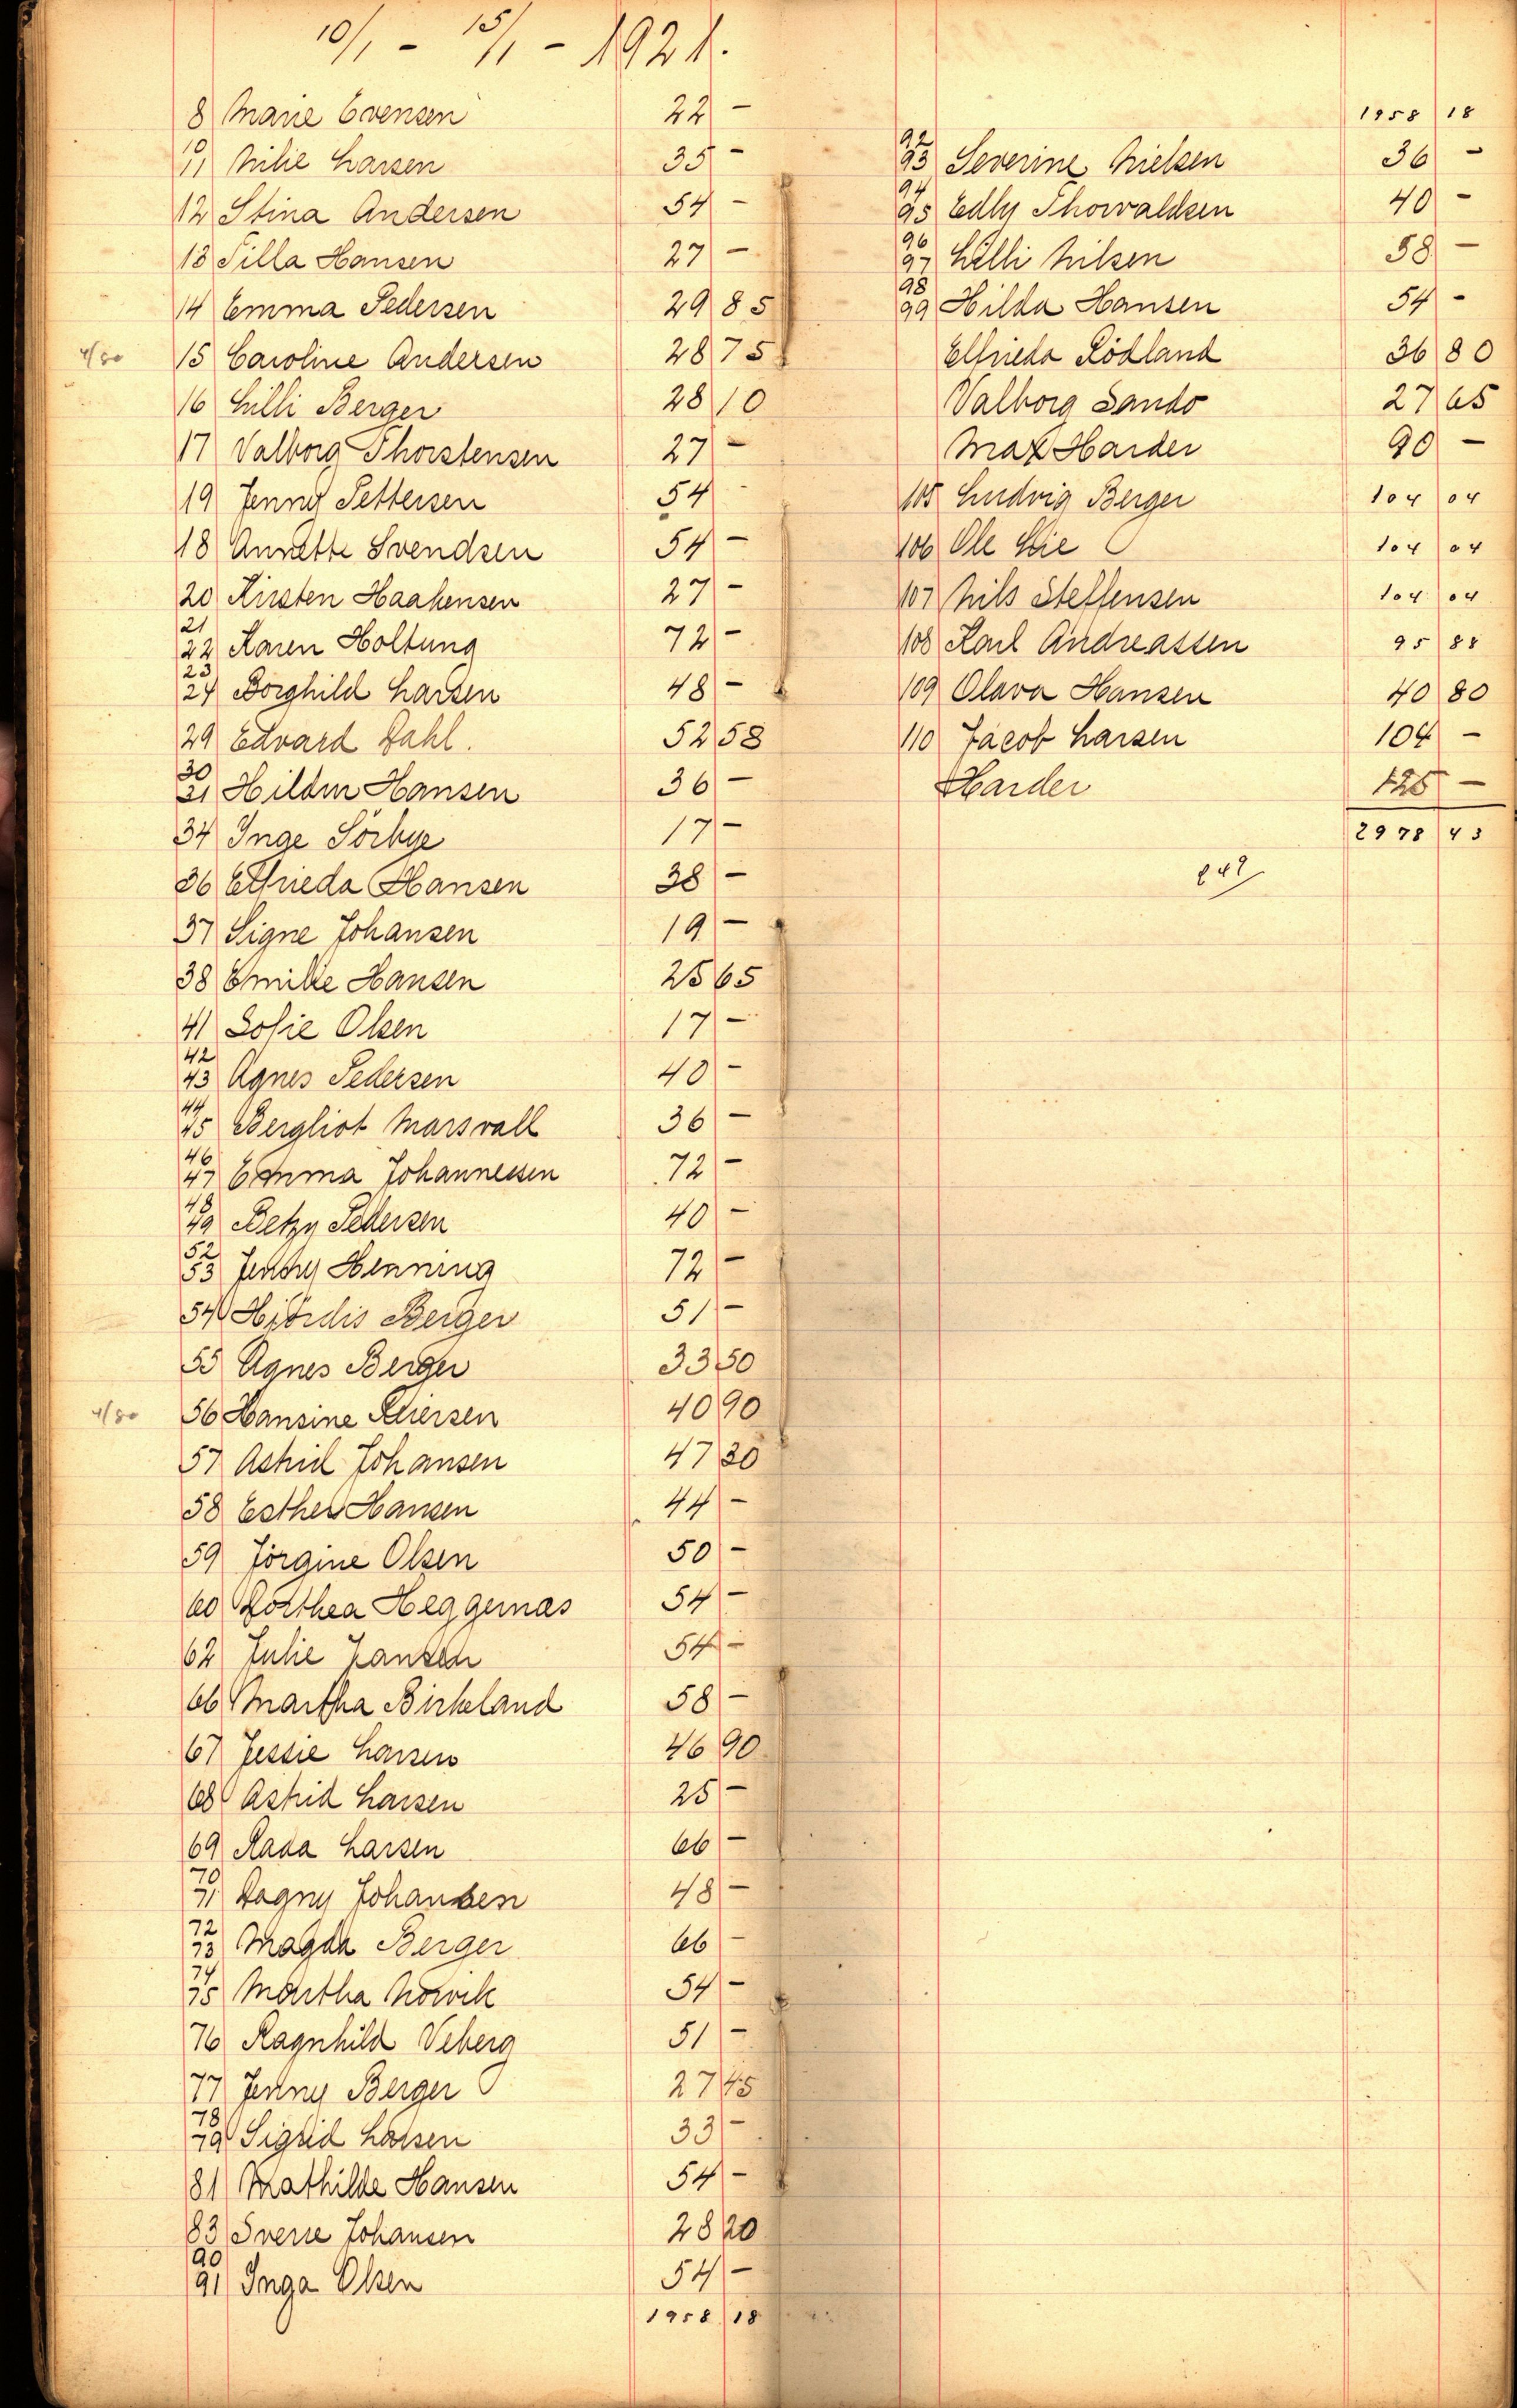 10/1 - 15/1 - 1921.
8 Marie Evensen 22 -
10 11 Milie Larsen 35 -
12 Stina Andersen 54 -
13 Tilla Hansen 27 -
14 Emma Pedersen 29 85
4/80 15 Caroline Andersen 28 75
16 Lilli Berger 28 10
17 Valborg Thorstensen 27 -
19 Jenny Pettersen 54 -
18 Annette Svendsen 54 -
20 Kirsten Haakensen 27 -
21 22 Karen Holtung 72 -
23 24 Borghild Larsen 48 -
29 Edvard Dahl. 52 58
30 31 Hildur Hansen 36 -
34 Inge Sörbye 17 -
36 Elfrieda Hansen 38 -
37 Signe Johansen 19 -
38 Emilie Hansen 25 65
41 Sofie Olsen 17 -
42 43 Agnes Pedersen 40 -
44 45 Bergliot Marsvall 36 -
46 47 Emma Johannessen 72 -
48 49 Betzy Pedersen 40 -
52 53 Jenny Henning 72 -
54 Hjördis Berger 51 -
55 Agnes Berger 33 50
4/80 56 Hansine 40 90
57 Astrid Johansen 47 20
58 Esther Hansen 44 -
59 Jörgine Olsen 50 -
60 Dorthea Heggernæs 54 -
62 Julie Jansen 54 -
66 Martha Birkeland 58 -
67 Jessie Larsen 46 90
68 Astrid Larsen 25 -
69 Larsen 66 -
70 71 Dagny Johansen 48 -
72 73 Magda Berger 66 -
74 75 Martha Norvik 54 -
76 Ragnhild Veberg 51 -
77 Jenny Berger 27 45
78 79 Sigrid Larsen 33 -
81 Mathilde Hansen 54 -
83 Sverre Johansen 28 20
90 91 Inga Olsen 54 -
1958 18
1958 18
92 93 Severine Nielsen 36 -
94 95 Edly Thorvaldsen 40 -
96 97 Lilli Nilsen 58 -
98 99 Hilda Hansen 54 -
Elfrieda Rödland 36 80
Valborg Sando 27 65
Max Harder 90 -
105 Ludvig Berger 104 04
106 Ole Lie 104 04
107 Nils Steffensen 104 04
108 Karl Andreassen 95 88
109 Olava Hansen 40 80
110 Jacob Larsen 104 -
Harder 125 -
2978 43